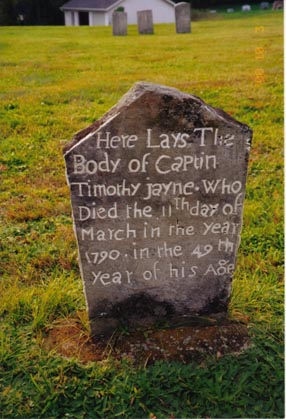 Here Lays The
Body of Captin
Timothy Jayne. Who
Died the 11th day of
March in the Year
1790. in the 49th
year of his Age